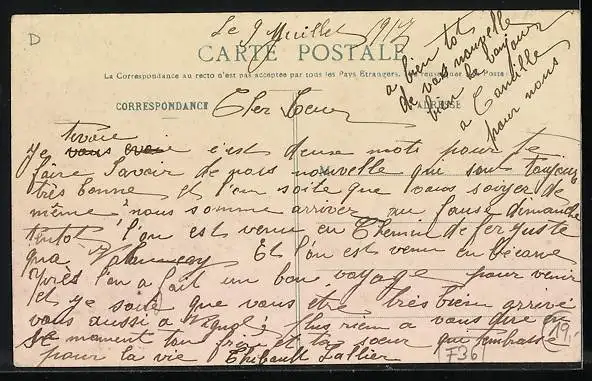 D
Le 9 Juillet 1917
CARTE POSTALE
La Correspondance au recto n'est pas acceptée par tous les Pays Etrangers. (Se renseigner à la Poste)
CORRESPONDANCE
ADRESSE
a bien tot
de vos nouvelle
bien le bonjour
a Camille
pour nous
Cher
Je vous c'est deux mots pour te
faire savoir de nos nouvelle qui sont toujour
très bonne et l'on soite que vous soiyer de
même nous somme arriver au dimanche
tentot l'on est venu en Chemin de fer juste
qua Et l'on est venu en bécane
près l'on a fait un bon voyage pour venir
et je soite que vous être très bien arrivé
vous aussi a plus rien a vous dire en
se moment ton frère et ta sœur qui t'embrasse
pour la vie Thibault Lallier
19,-
F36